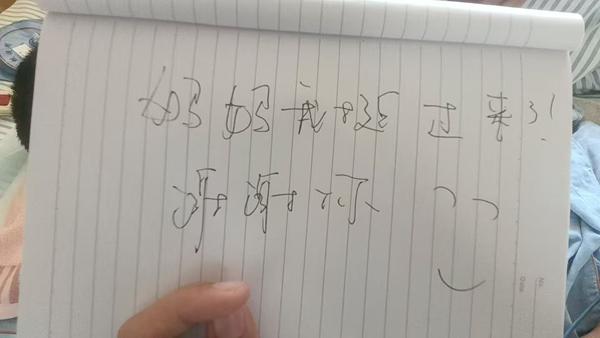 妈妈我挺过来了!
谢谢你
No.
Date